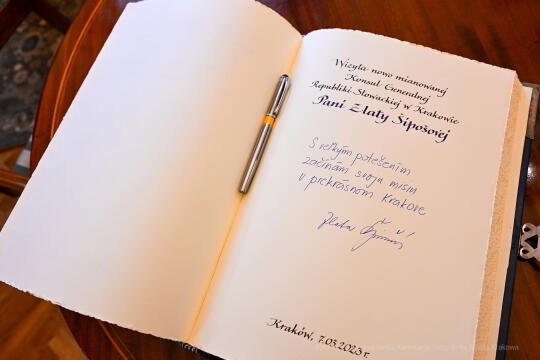 Wizyta nowo mianowanej
Konsul Generalnej
Republiki Słowackiej w Krakowie
Pani Zlaty Šipošovej
S veľkým potešením
začínam svoju misiu
v prekrásnom Krakove
Zlata Šipošová
Kraków, 7.03.2023 r.